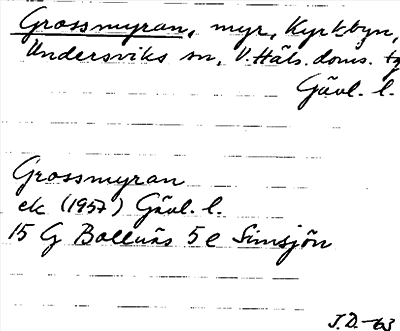 Grossmyran, myr, Kyrkbyn,
Undersviks sn, V. Häls. doms. tg
Gävl. l.
Grossmyran
ek (1957) Gävl. l.
15 G Bollnäs 5 e Simsjön
J.D.-63